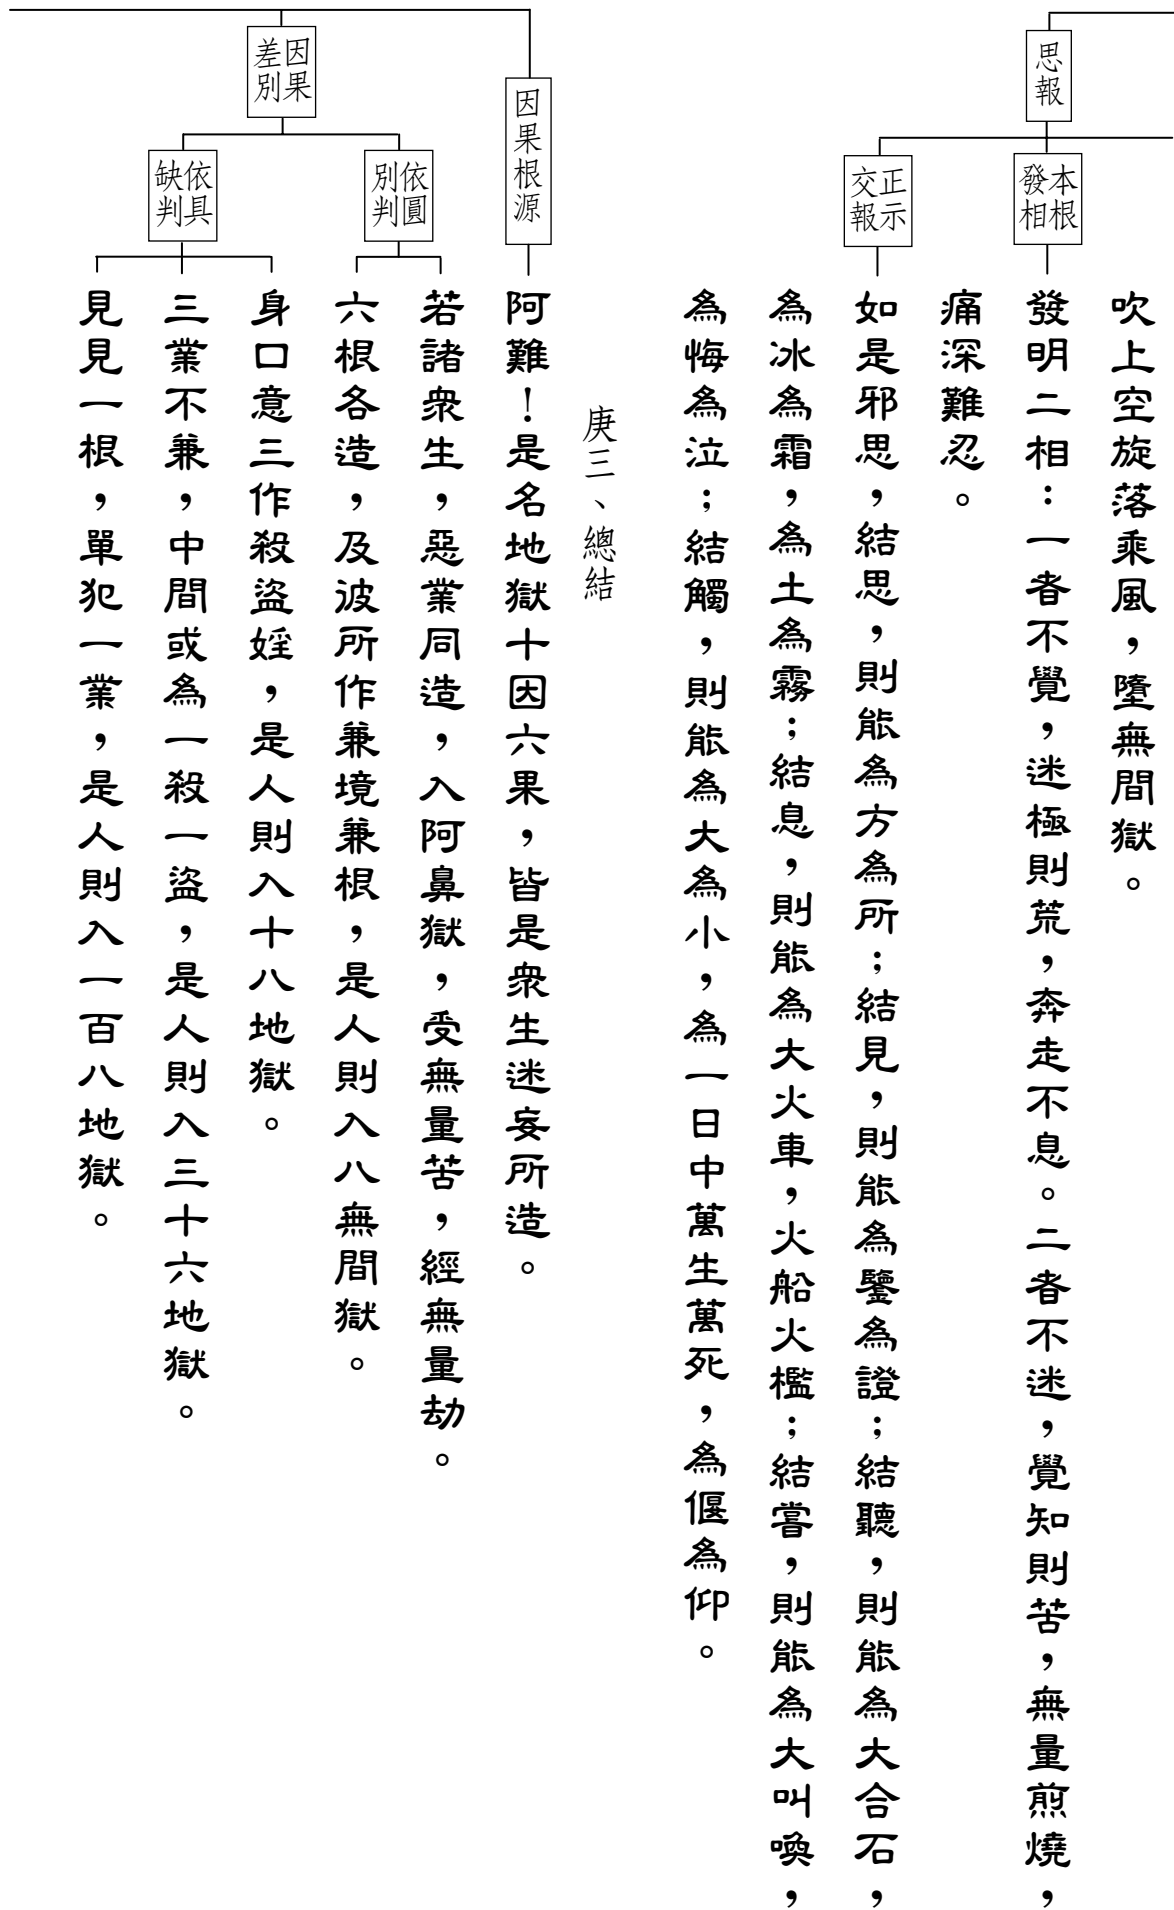 思報
吹上空旋落乘風，墮無間獄。
本根發相
發明二相：一者不覺，迷極則荒，奔走不息。二者不迷，覺知則苦，無量煎燒，
痛深難忍。
正示交報
如是邪思，結思，則能為方為所；結見，則能為鑒為證；結聽，則能為大合石，
為冰為霜，為土為霧；結息，則能為大火車，火船火檻；結嘗，則能為大叫喚，
為悔為泣；結觸，則能為大為小，為一日中萬生萬死，為偃為仰。
庚三、總結
因果根源
阿難！是名地獄十因六果，皆是眾生迷妄所造。
因果差別
依圓別判
若諸眾生，惡業同造，入阿鼻獄，受無量苦，經無量劫。
六根各造，及波所作兼境兼根，是人則入八無間獄。
依具缺判
身口意三作殺盜婬，是人則入十八地獄。
三業不兼，中間或為一殺一盜，是人則入三十六地獄。
見見一根，單犯一業，是人則入一百八地獄。